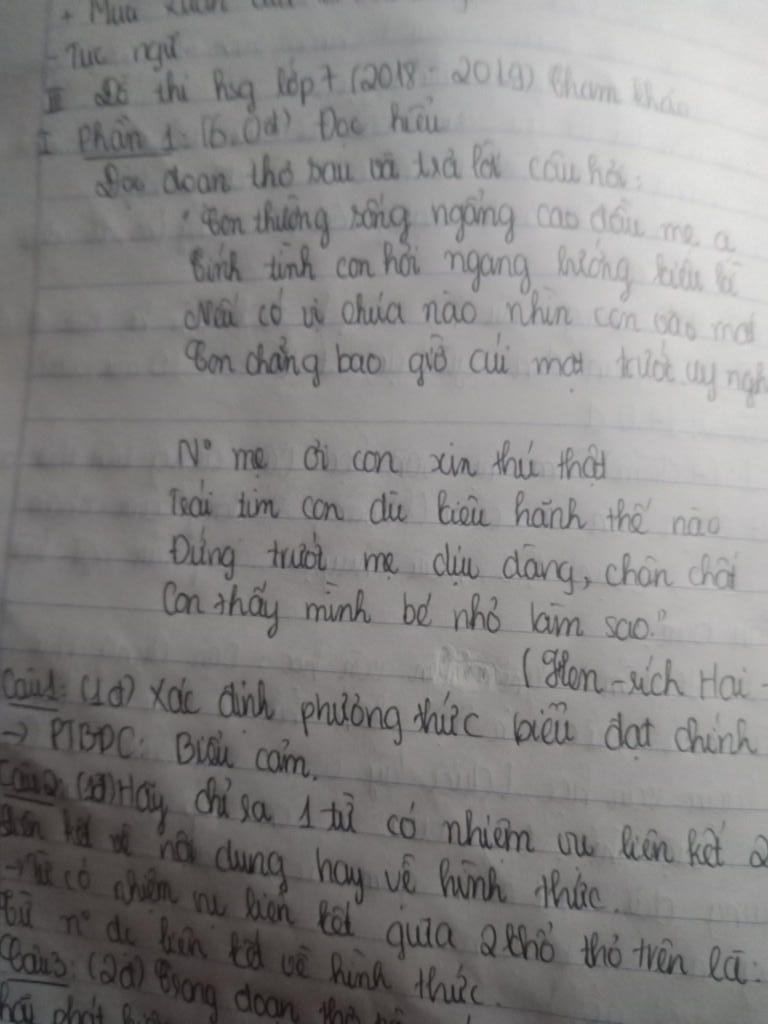 + Mùa xuân của
- Tục ngữ
III Đề thi hsg lớp 7 (2018 - 2019) tham khảo
I Phần 1: (6.0đ) Đọc hiểu
Đọc đoạn thơ sau và trả lời câu hỏi:
"Con thường sống ngẩng cao đầu mẹ ạ
tính tình con hơi ngang bướng kiêu kì
Nếu có vị chúa nào nhìn con vào mắt
Con chẳng bao giờ cúi mặt trước uy ngh
N° mẹ ơi con xin thú thật
Trái tim con dù kiêu hãnh thế nào
Đứng trước mẹ dịu dàng, chân chất
Con thấy mình bé nhỏ làm sao."
(Hen-rích Hai-
Câu1: (1đ) Xác định phương thức biểu đạt chính
→ PTBĐC: Biểu cảm.
Câu2: (1đ) Hãy chỉ ra 1 từ có nhiệm vụ liên kết 2
liên kết về nội dung hay về hình thức.
→ Từ có nhiệm vụ liên kết giữa 2 khổ thơ trên là:
từ n° để liên kết về hình thức.
Câu3: (2đ) Trong đoạn thơ
hãy phát